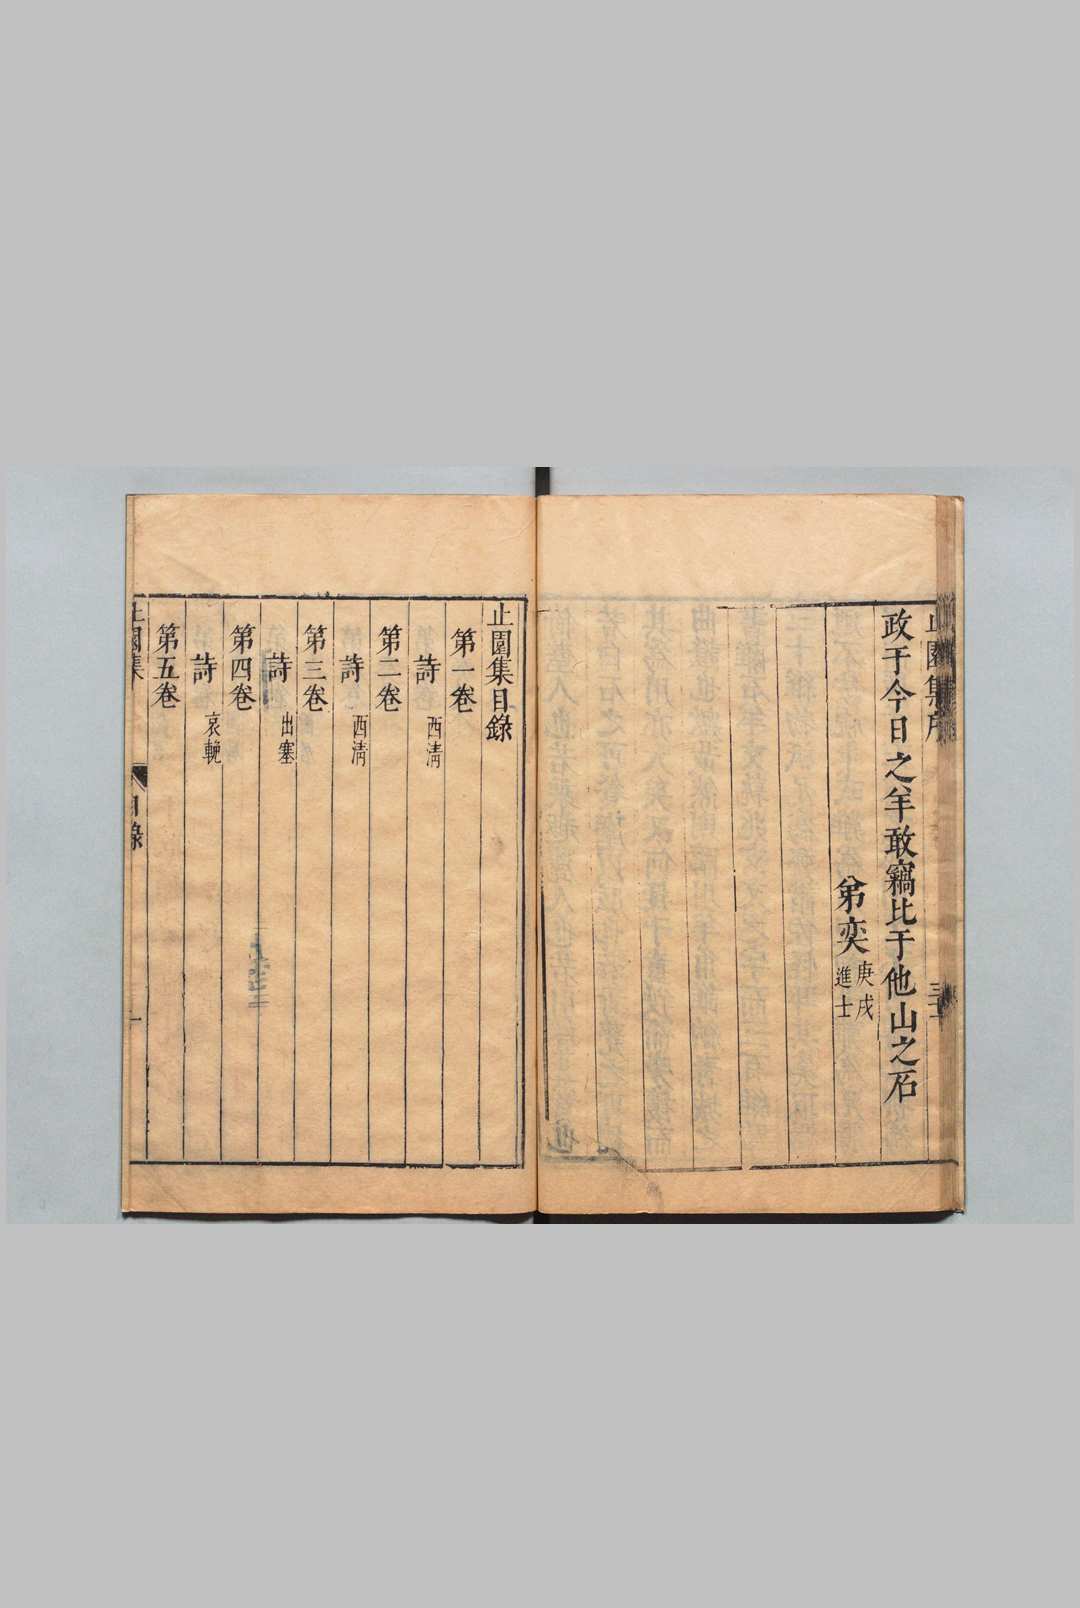 止園集序
政于今日之年敢竊比于他山之石
弟奕庚戌
進士
止園集目錄
第一卷
詩西清
第二卷
詩西清
第三卷
詩出塞
第四卷
詩哀輓
第五卷
止園集
目錄
一